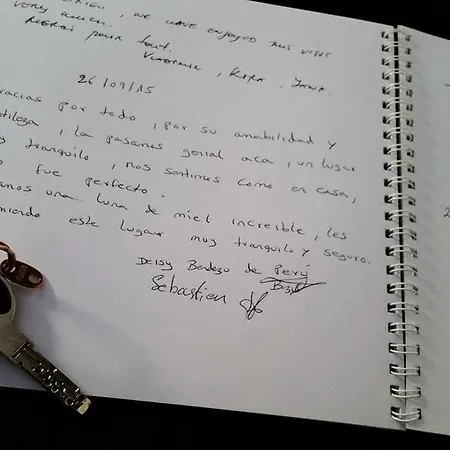 , WE HAVE ENJOYED THIS VISIT
VERY
MERCI pour tout.
VLADIMIR, KIRA,
26/09/15
racias por todo, por su amabilidad y
tileza, la pasamos genial aca, un lugar
y tranquilo, nos sentimos como en casa,
o fue perfecto.
amos una luna de miel increible, les
miendo este lugar muy tranquilo y seguro.
Deisy Bendezu de Perú
Sebastien
2